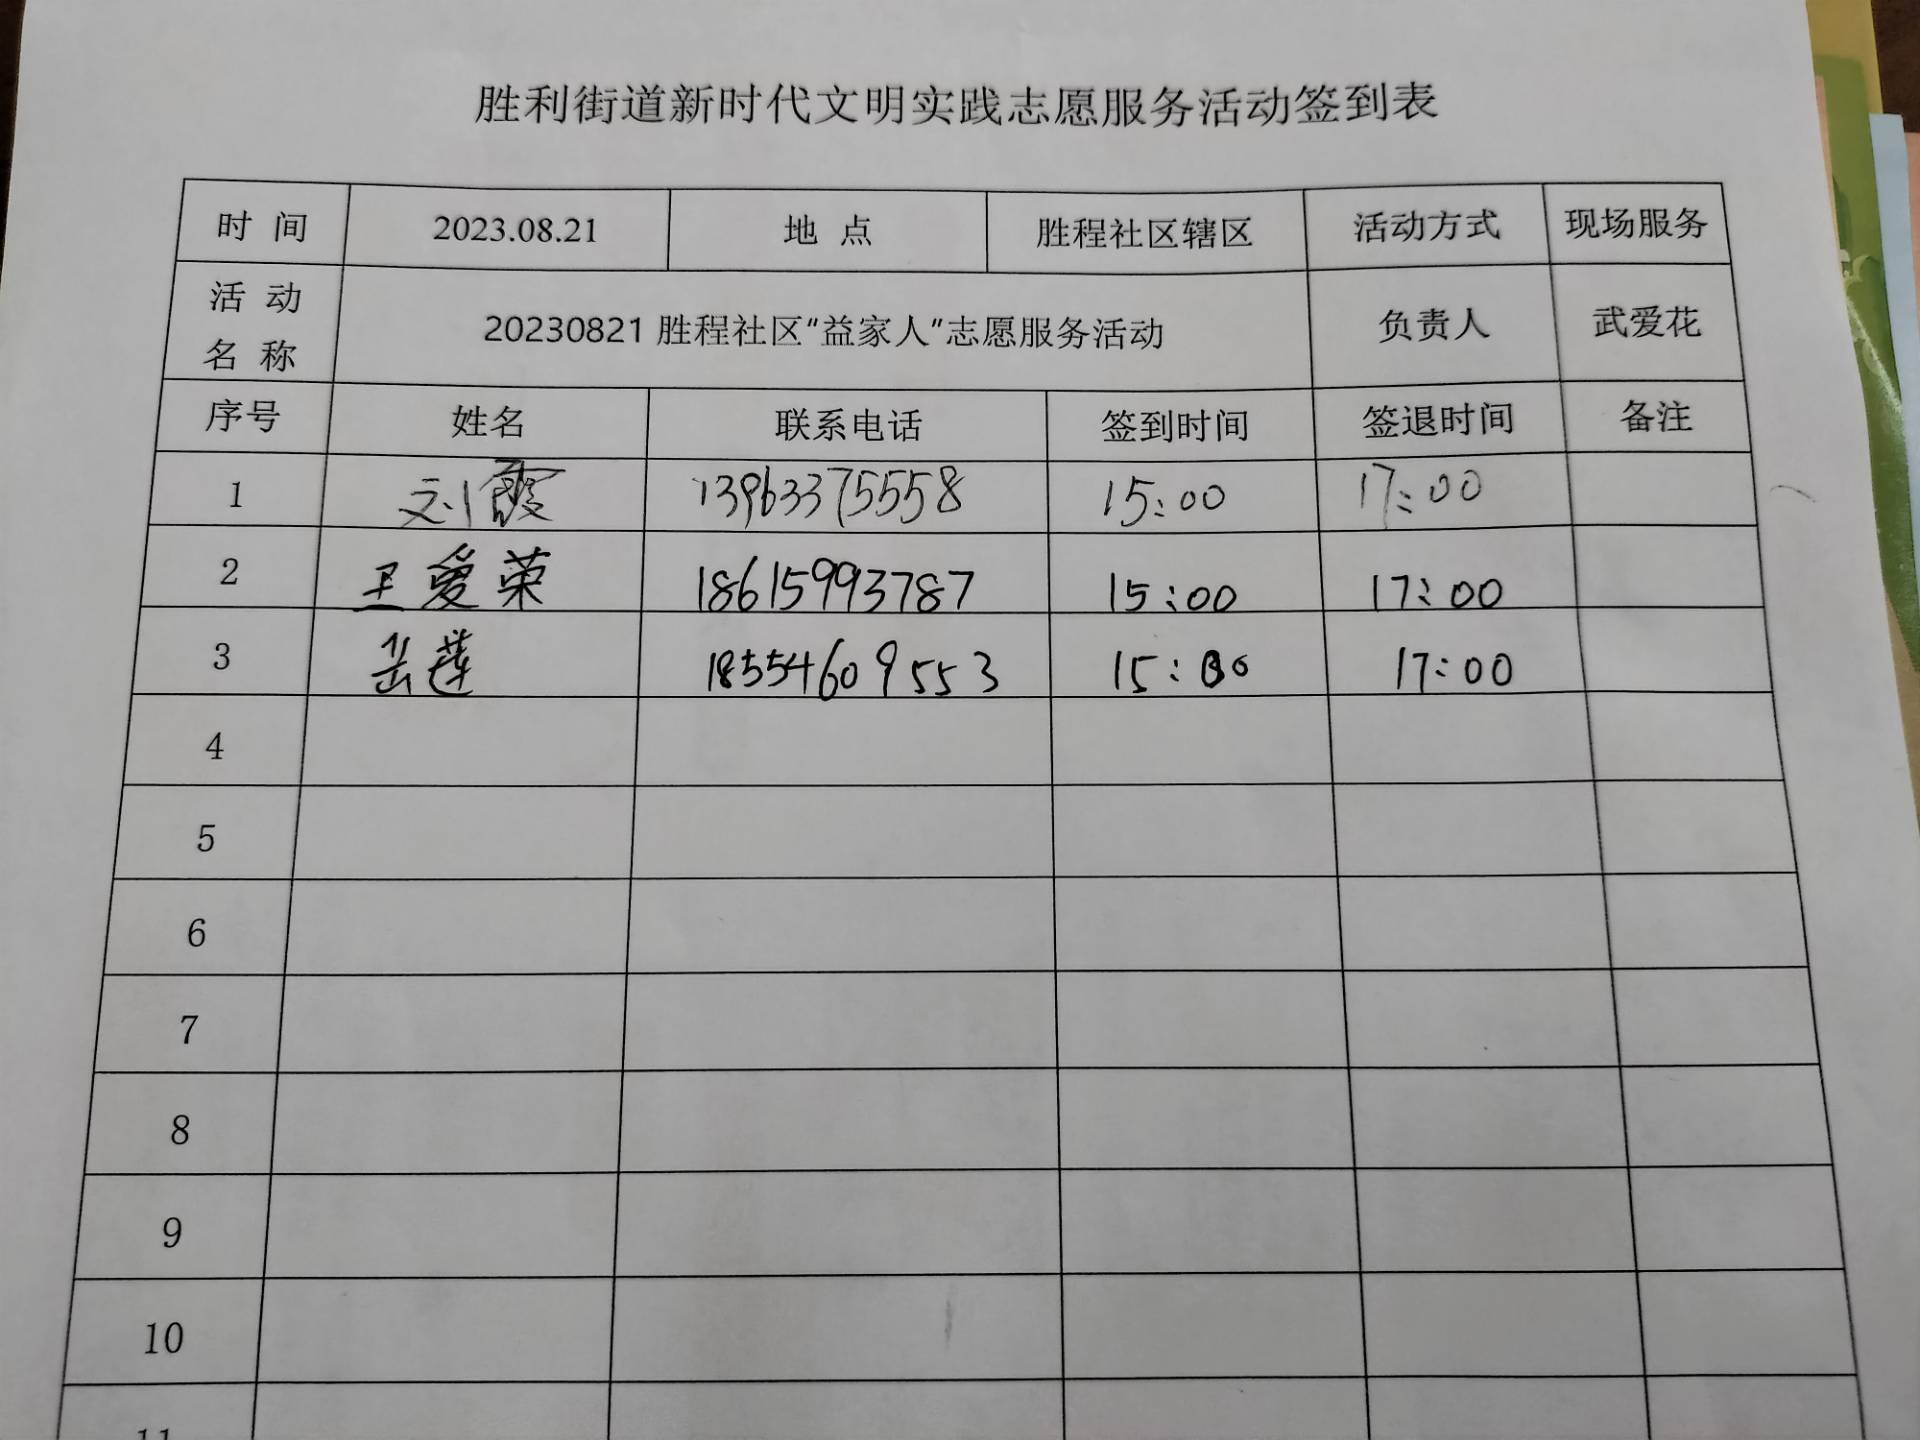 胜利街道新时代文明实践志愿服务活动签到表
时 间 2023.08.21 地 点 胜程社区辖区 活动方式 现场服务
活 动
名 称 20230821 胜程社区“益家人”志愿服务活动 负责人 武爱花
序号 姓名 联系电话 签到时间 签退时间 备注
1 刘霞 13963375558 15:00 17:00
2 王爱荣 18615993787 15:00 17:00
3 岳莲 18554609553 15:00 17:00
4
5
6
7
8
9
10
11